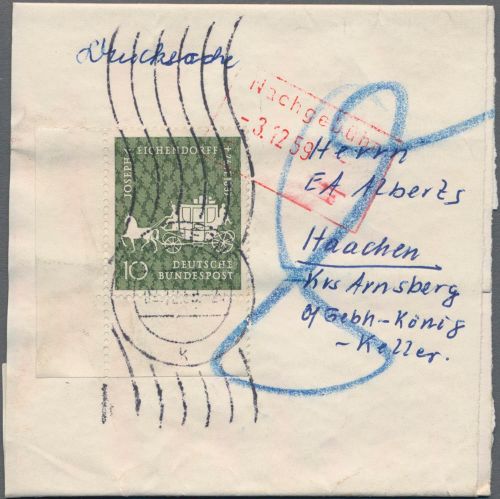 Drucksache
Nachgebühr
-3.12.59
JOSEPH
EICHENDORFF
10 DEUTSCHE
BUNDESPOST
K
Herrn
EA Alberts
Haachen
Krs Arnsberg
Gebh-König
-Keller.